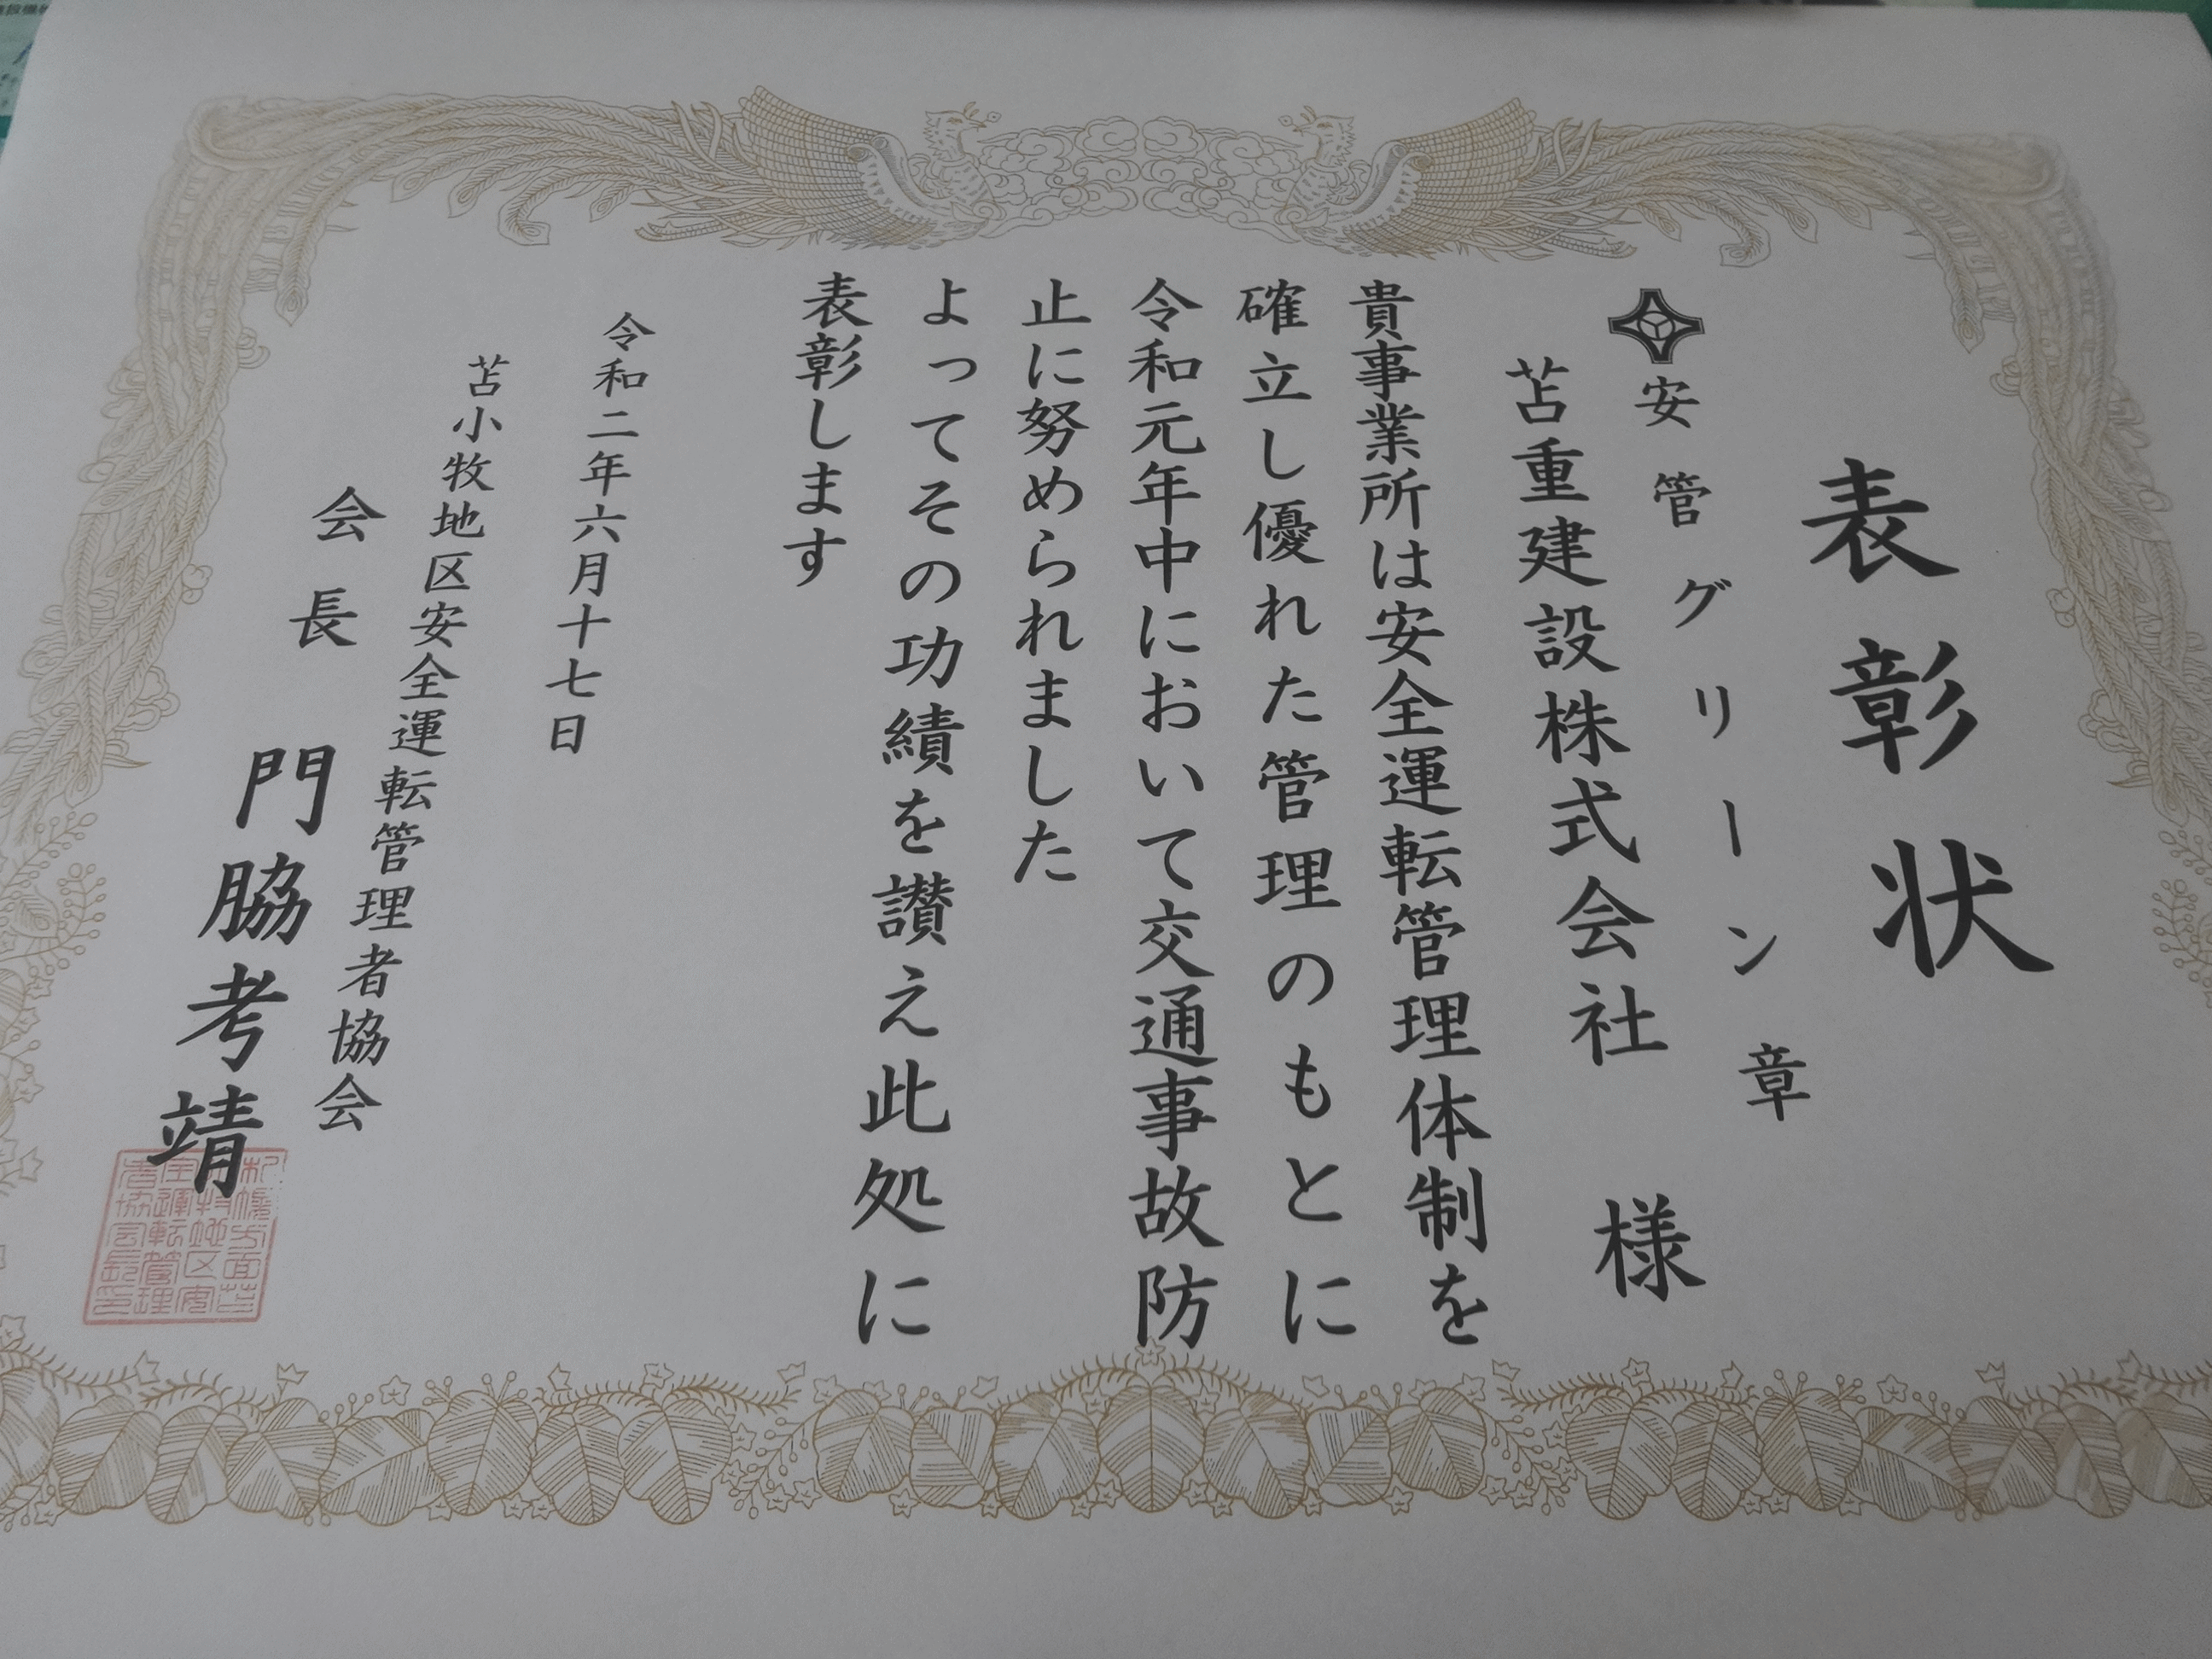 表彰状
安管グリーン章
苫重建設株式会社 様
貴事業所は安全運転管理体制を
確立し優れた管理のもとに
令和元年中において交通事故防
止に努められました
よってその功績を讃え此処に
表彰します
令和二年六月十七日
苫小牧地区安全運転管理者協会
会長 門脇考靖